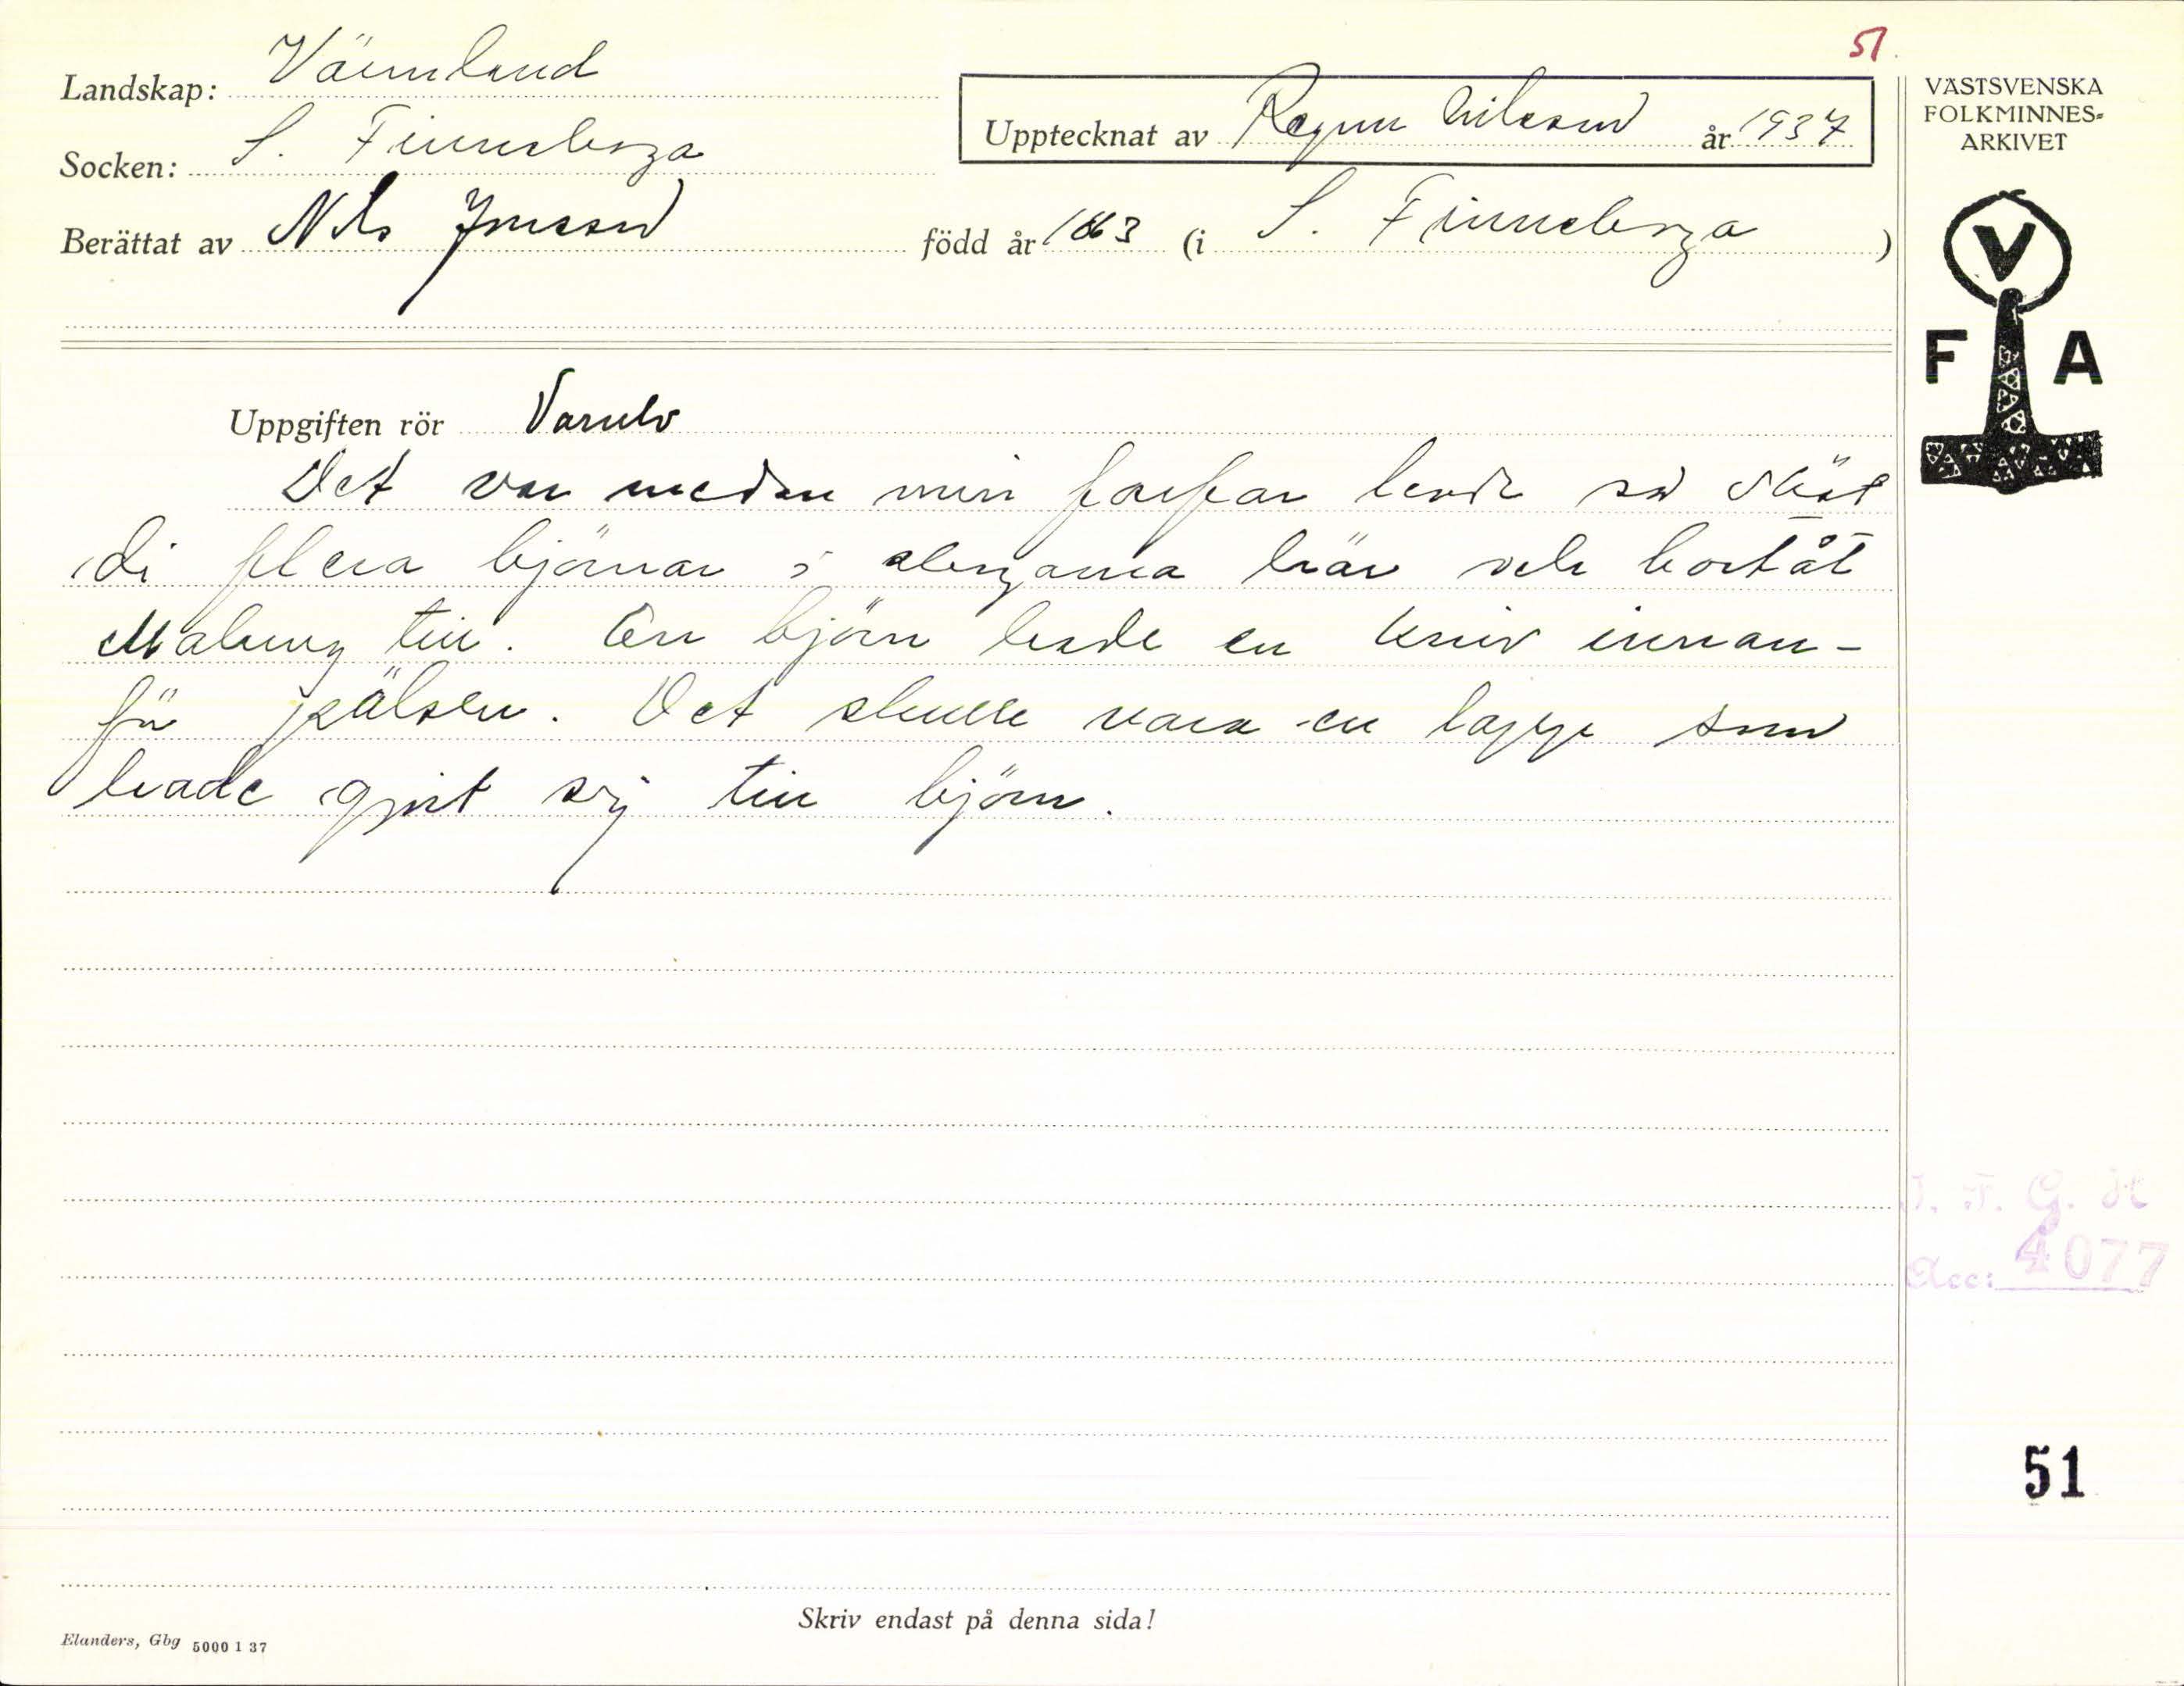 51.
Landskap: Värmland
Socken: S. Finnskoga
Upptecknat av Ragnar Nilsson år 1937
Berättat av Nils Jonsson född år 1863 (i S. Finnskoga)
VÄSTSVENSKA
FOLKMINNES-
ARKIVET
V
F A
Uppgiften rör Varulv
Det var medan min farfar levde så sköt
di flera björnar i skogarna här och bortåt
Malung till. En björn hade en kniv innan-
för pälsen. Det skulle vara en lapp som
hade gjort sig till björn.
I. F. G. H
Acc: 4077
51
Skriv endast på denna sida!
Elanders, Gbg 5000 1 37